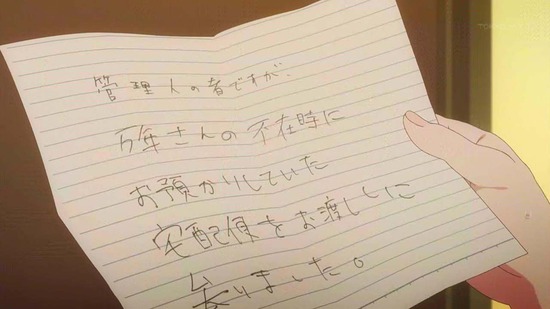 管理人の者ですが、
万年さんの不在時に
お預かりしていた
宅配便をお渡ししに
参りました。